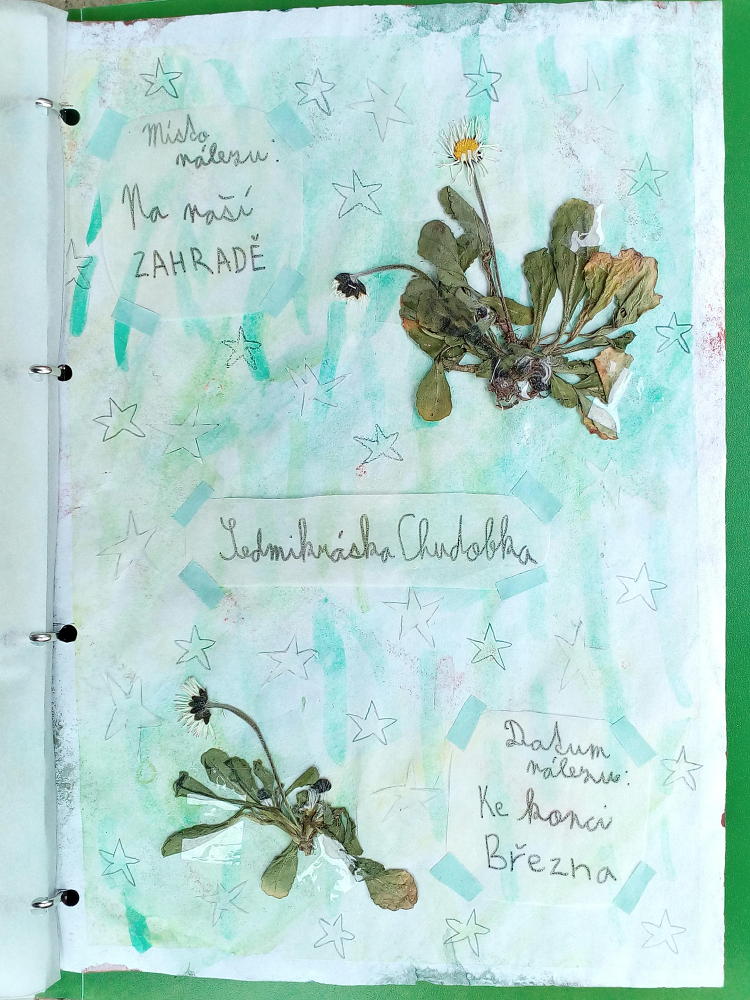 Místo
nálezu:
Na naší
ZAHRADĚ
Sedmikráska Chudobka
Datum
nálezu:
Ke konci
Března